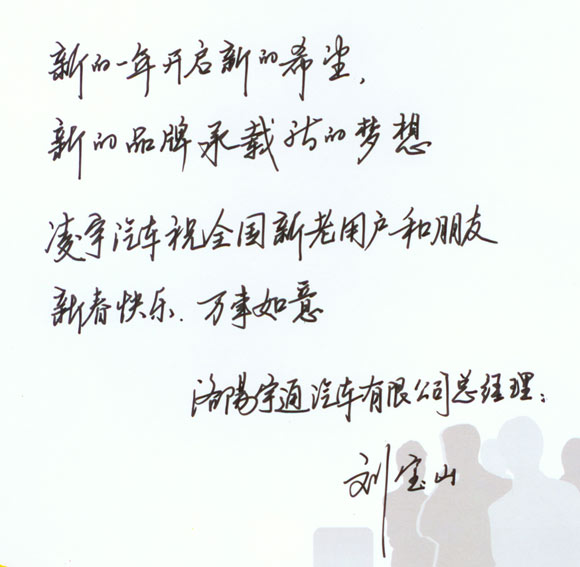 新的一年开启新的希望，
新的品牌承载新的梦想
凌宇汽车祝全国新老用户和朋友
新春快乐.万事如意
洛陽宇通汽车有限公司总经理：
刘宝山